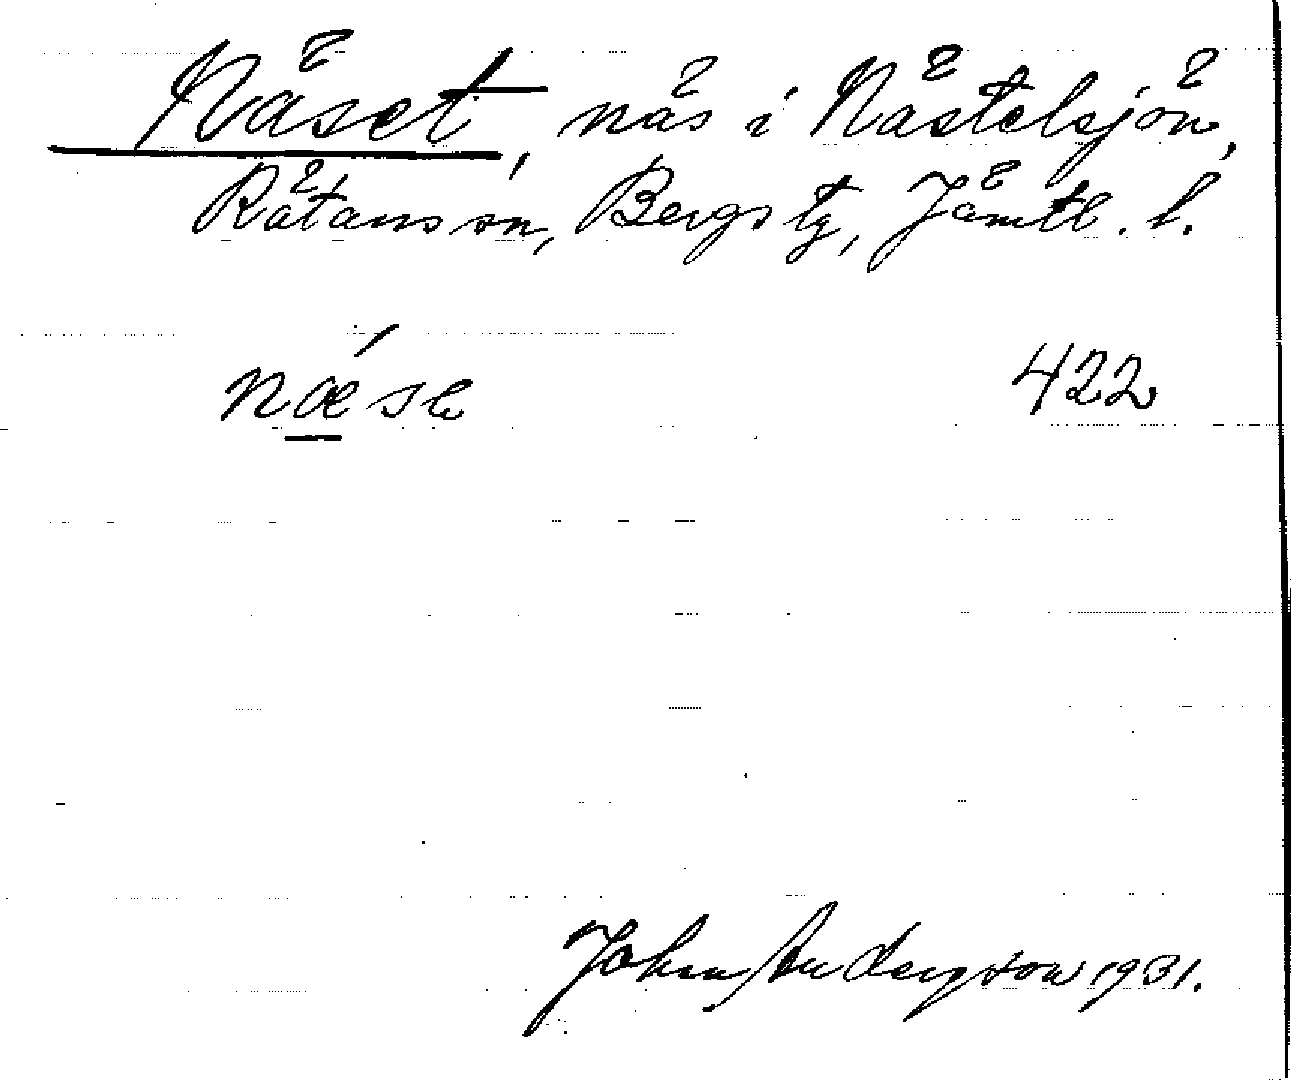 Näset, näs i Nästelsjön,
Rätans sn, Bergs tg, Jämtl. l.
næ´se 422
John Andersson 1931.